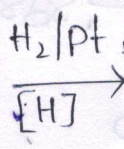 H₂/Pt
[H]